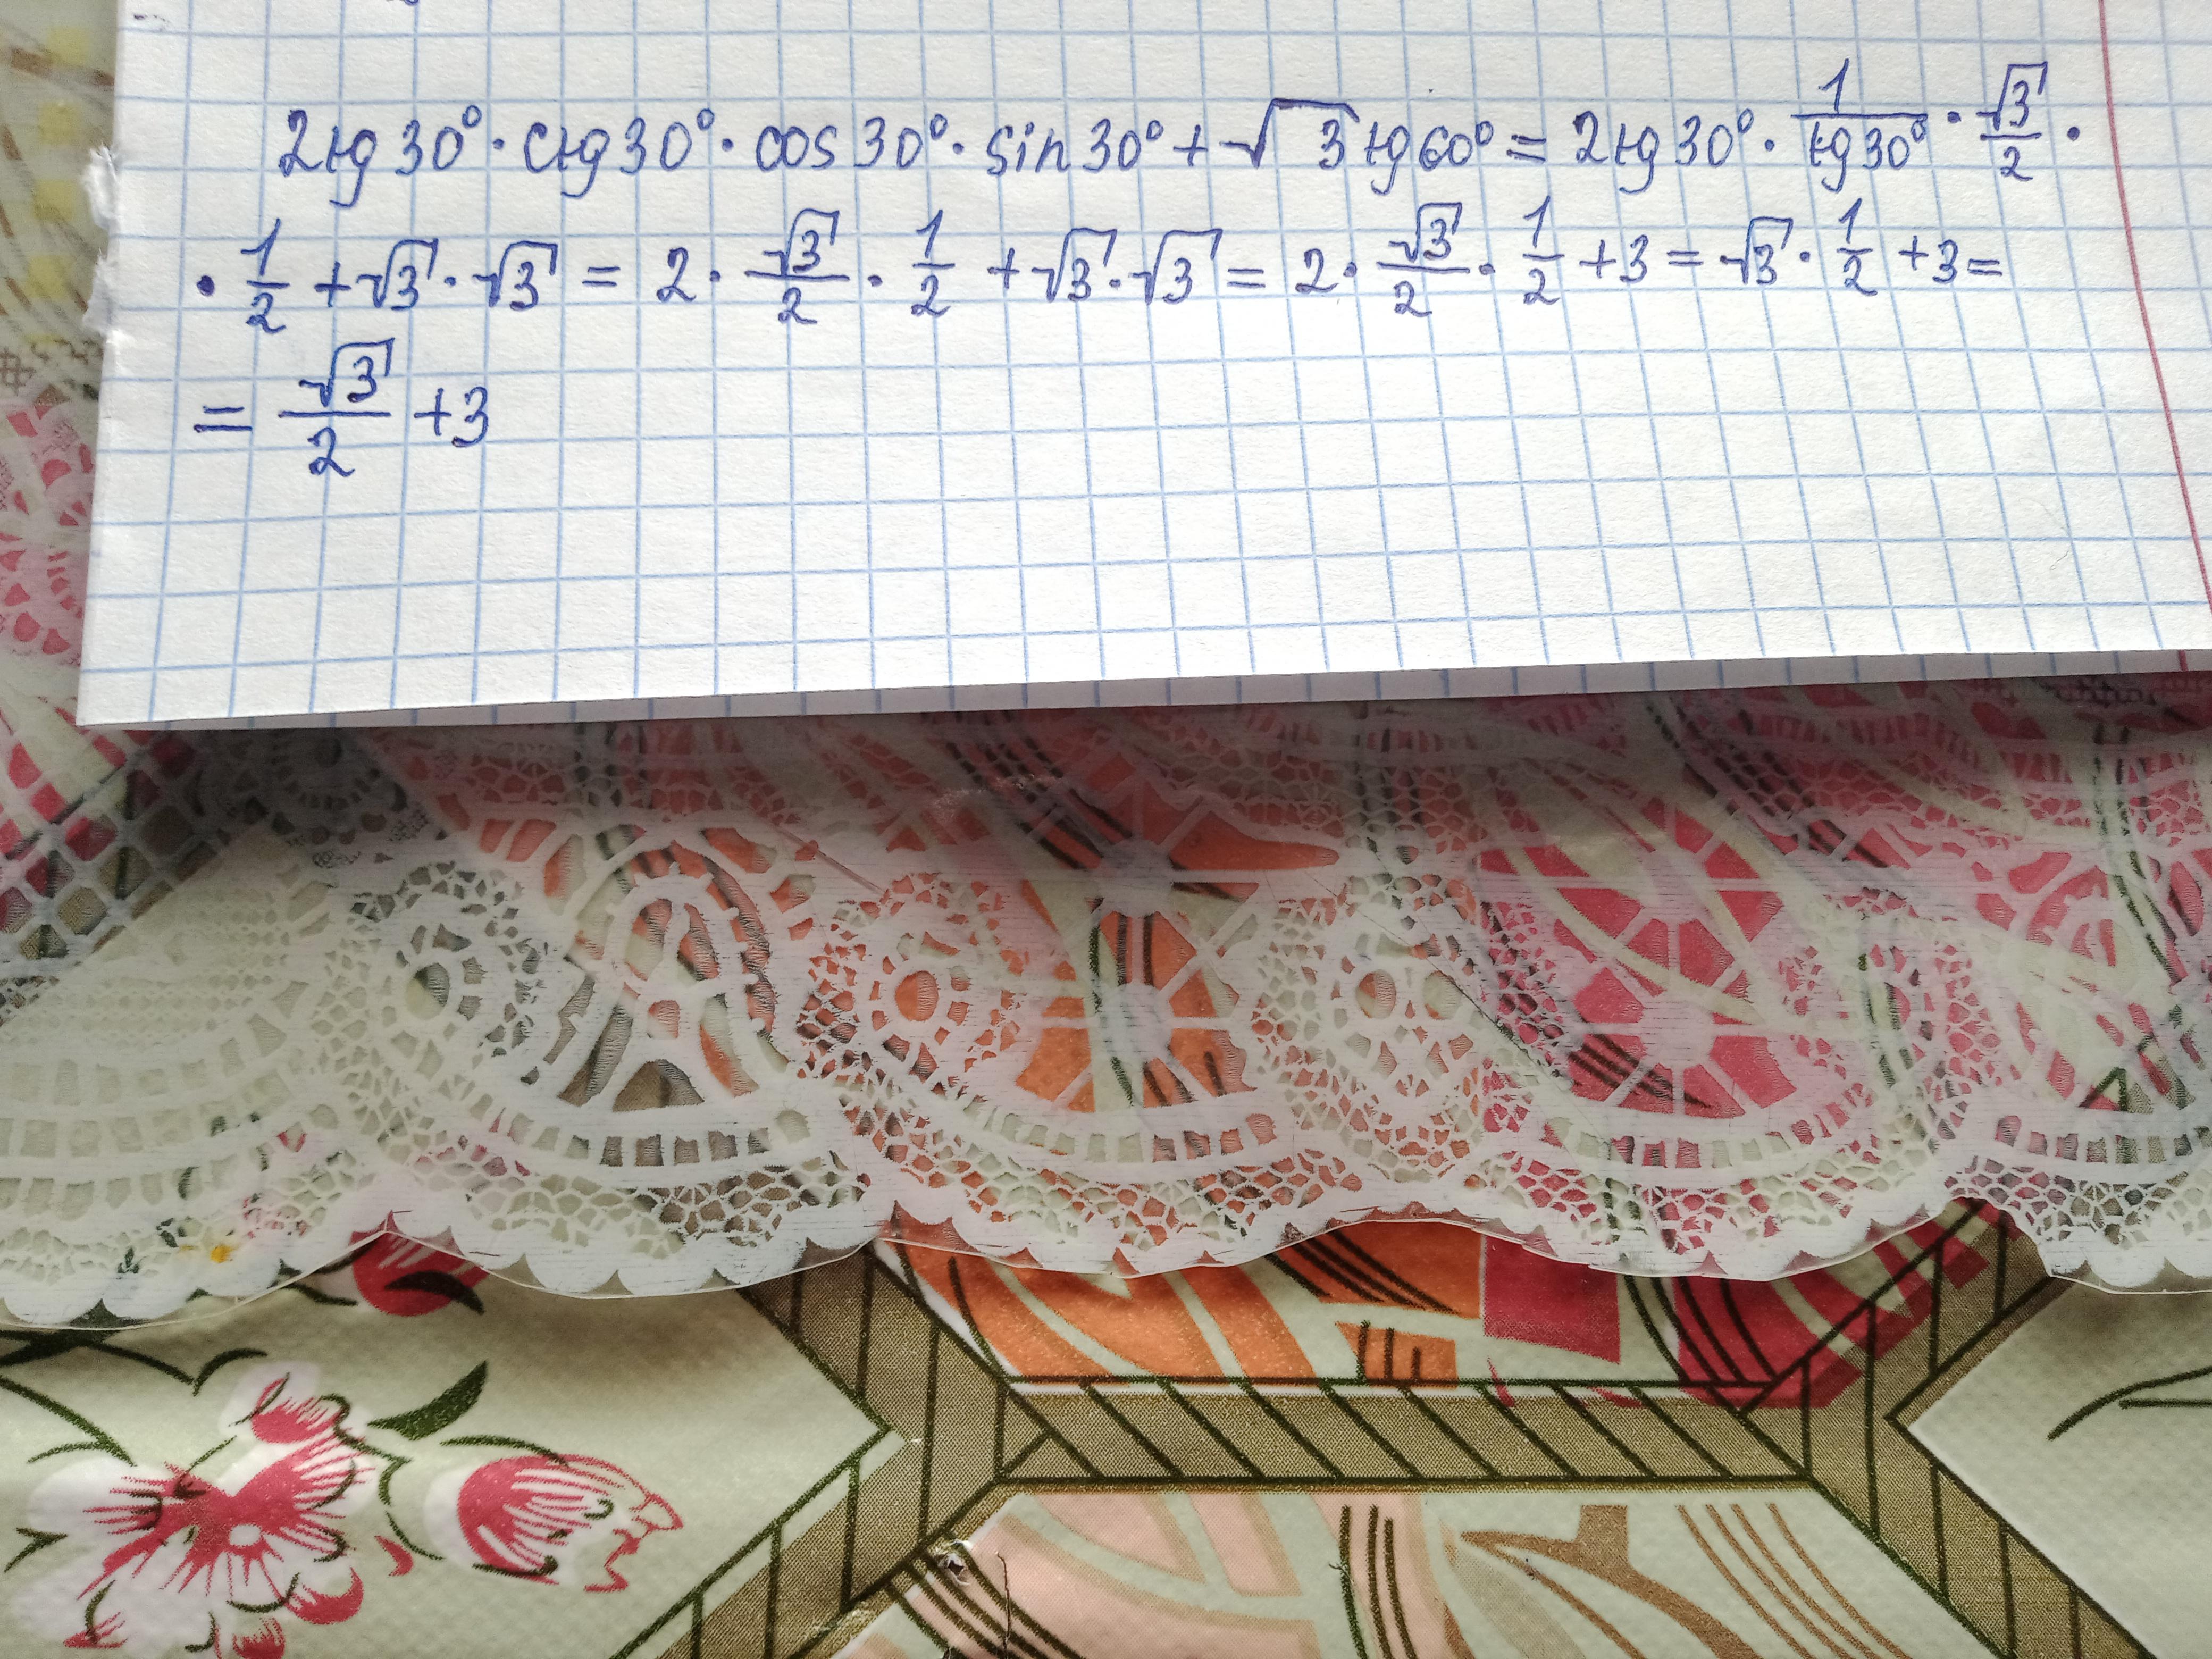 2tg30°·ctg30°·cos30°·sin30°+√3tg60°=2tg30°·1/tg30°·√3/2·
·1/2+√3·√3=2·√3/2·1/2+√3·√3=2·√3/2·1/2+3=√3·1/2+3=
=√3/2+3